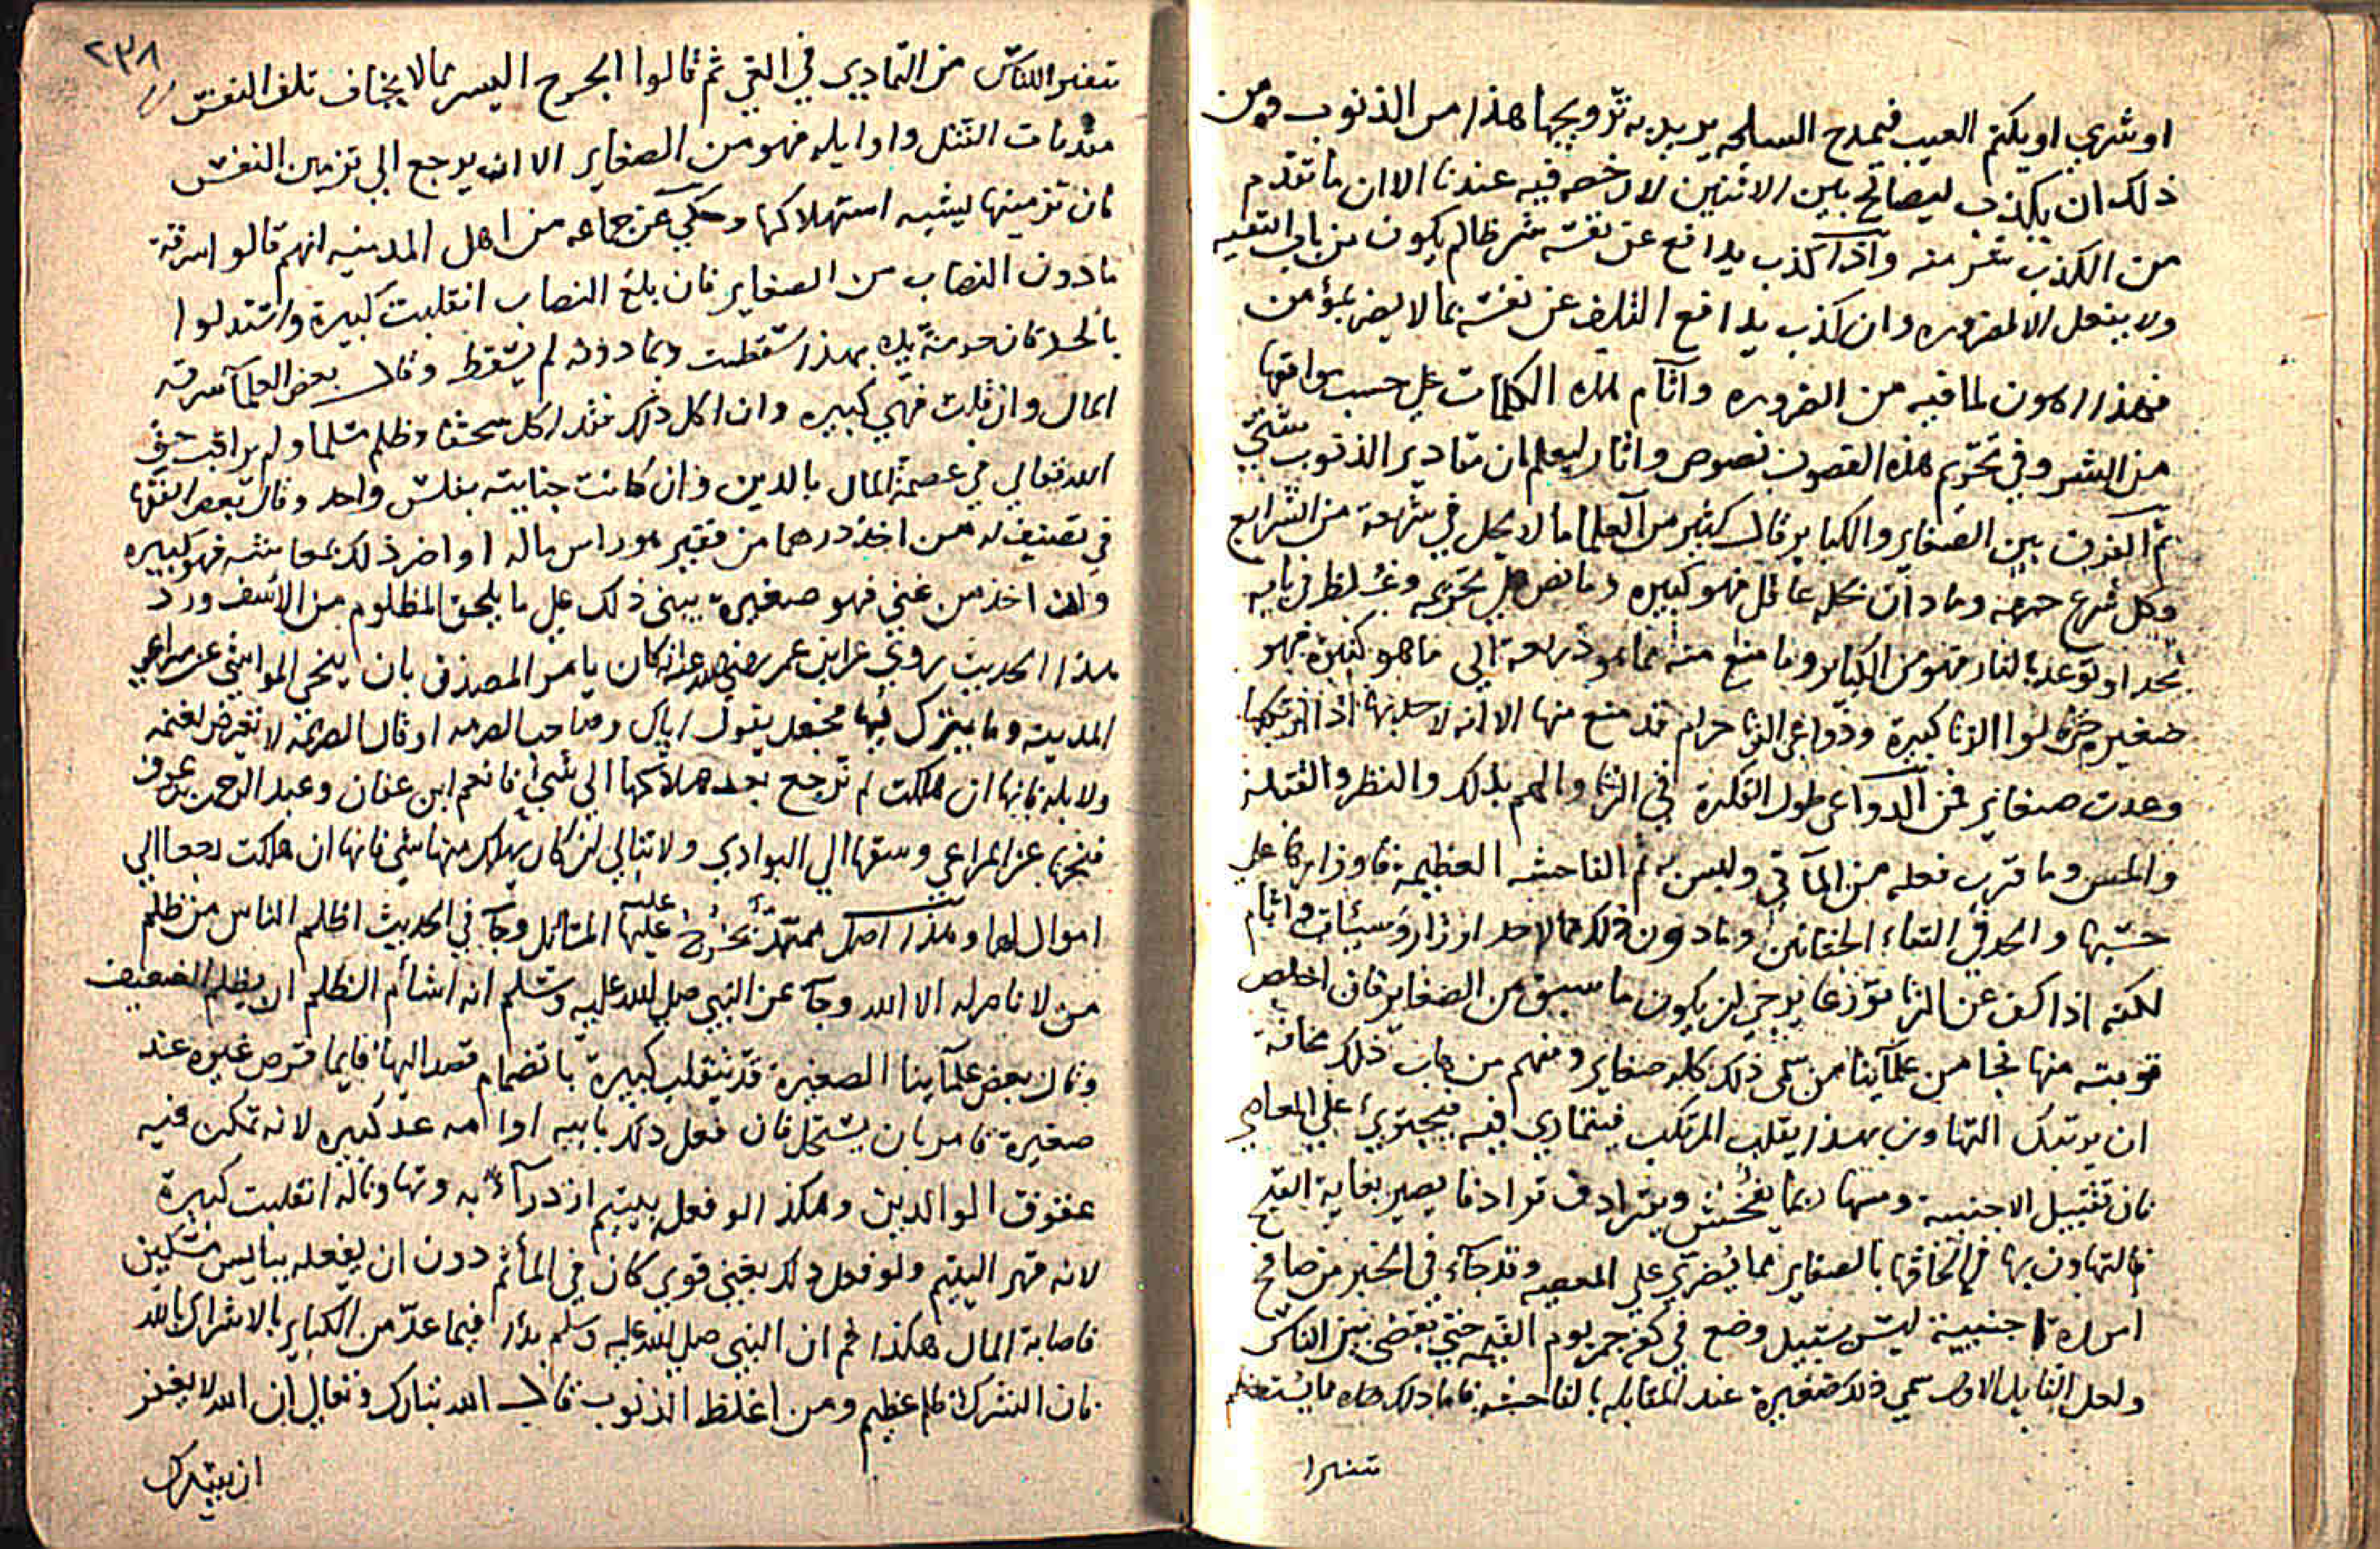 او شري او يكتم العيب فيمدح السلعه يريد به ترويجها هذا من الذنوب ومن
ذلك ان يكذب ليصالح بين الاثنين لا رخصه فيه عندنا الا ان ما تقدم
من الكذب شر منه واذا كذب يدافع عن نفسه شر ظالم يكون من باب التقيه
ولا يفعل الا لضروره وان كذب يدافع التلف عن نفسه بما لا يضر بمؤمن
فهذا اهون لما فيه من الضروره وآثام هذه الكلمات علي حسب مواقعها
من الشر وفي تحريم هذه الفصول نصوص واثار ليعلم ان مقادير الذنوب شتي
ثم الفرق بين الصغاير والكباير قال كثير من العلما ما لا يحل في شرعة من الشرايع
وكل شرع حرمه وما دان بحله عاقل فهو كبيره وما نص علي تحريمه وغلظ في بابه
بحد او توعد بالنار فهو من الكباير وما منع منه مما هو ذريعة الي ما هو كبيره فهو
صغيره قالوا الزنا كبيرة ودواعي الزنا حرام قد منع منها الا انه لا حد لها اذا ارتكبها
وعدت صغاير فمن الدواعي طول الفكرة في الزنا والهم بذلك والنظر والقبلة
والمس وما قرب فعله من المآتي وليس به ثم الفاحشه العظيمة فاوزارها علي
حسبها والحد في التقاء الختانين وما دون ذلك مما لا حد اوزار وسيئات واثام
لكنه اذا كف عن الزنا تورعا يرجي ان يكون ما سبق من الصغاير فان اخلص
توبته منها نجا من علمآينا من سمي ذلك كله صغاير ومنهم من هاب ذلك مخافة
ان يرتبك التهاون بهذا بقلب المرتكب فيتمادي فيه فيجتري علي المعاصي
فان تقبيل الاجنبيه ومسها ربما يفحش ويترادف ترادفا يصير بغاية القبح
فالتهاون بها في الحاقها بالصغاير مما يضري علي المعصيه وقد جآء في الخبر من صافح
امراة اجنبية ليس بسبيل وضع في كفه جمر يوم القيمه حتي يقضي بين الناس
ولعل القايل الاول سمي ذلك صغيرة عند المقابله بالفاحشه فاما ذلك مما يستعظم
تنفيرا
٢٣٨
تنفيرا للناس من التمادي في الغي ثم قالوا الجرح اليسر مما لا يخاف تلف النفس
مقدمات القتل واوايله فهو من الصغاير الا ان يرجع الي تزمين النفس
فان تزمينها يشبه استهلاكها وحكي عن جماعه من اهل المدينه انهم قالوا سرقة
ما دون النصاب من الصغاير فان بلغ النصاب انقلبت كبيرة واستدلوا
بالحد فان حرمة يده بهذا سقطت وبما دونه لم يسقط وقال بعض العلمآ سرقه
المال وان قلت فهي كبيره وان اكل ذلك فقد اكل سحتا وظلم مسلما ولم يراقب حق
الله تعالي في عصمة المال بالدين وان كانت جنايته بفلس واحد وقال بعض الفقها
في تصنيف له من اخذ درهما من فقير هو راس ماله او اضر ذلك بمعاشه فهو كبيره
وان اخذ من غني فهو صغيره يبني ذلك علي ما يلحق المظلوم من الأسف ورد
هذا الحديث روي عن ابن عمر رضي الله عنه انه كان يامر المصدق بان ينحي المواشي عن مراعي
المدينه وما يترك فيها فجعل يقول اياك وصاحب الصرمه او قال الصريمة لا تعرض لغنمه
ولا بله فانها ان هلكت لم ترجع بعد هلاكها الي شئ فانعم ابن عفان وعبد الرحمن بن عوف
فنحها عن المراعي وسقها الي البوادي ولا تبالي ان كان يهلك منها شئ فانها ان هلكت رجعا الي
اموال لهما وهذا اصل ممهد تخرج عليه عليها المسائل وجآ في الحديث اظلم الناس من ظلم
من لا ناصر له الا الله وجآ عن النبي صلي الله عليه وسلم انه اشأم الظلم ان يظلم الضعيف
وقال بعض علمآينا الصغيرة قد تنقلب كبيرة بانضمام قصد اليها فايما قرص غيره عند
صغيرة فامر بان يستحل فان فعل ذلك بابيه او امه عد كبيره لانه تمكن فيه
عقوق الوالدين وهكذا لو فعل بيتيم ازدرآء به وتهاونا له انقلبت كبيرة
لانه قهر اليتيم ولو فعل ذلك بغني قوي كان في المأثم دون ان يفعله ببايس مسكين
فاصابة المال هكذا ثم ان النبي صلي الله عليه وسلم بدأ فيما عد من الكباير بالاشراك بالله
فان الشرك ظلم عظيم ومن اغلظ الذنوب قال الله تبارك وتعالي ان الله لا يغفر
ان يشرك